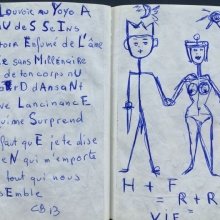 LOUVOIE AU YOYO A
U DES SEINS
ENFUMÉ DE L'ÂME
E SANS MILLÉNAIRE
DE TON CORPS NU
DANSANT
VE LANCINANCE
QUI ME SURPREND
FAUT QUE JE TE DISE
EN QUI M'EMPORTE
TOUT QUI NOUS
SEMBLE
CB 13
H + F
= R + R
VIE =